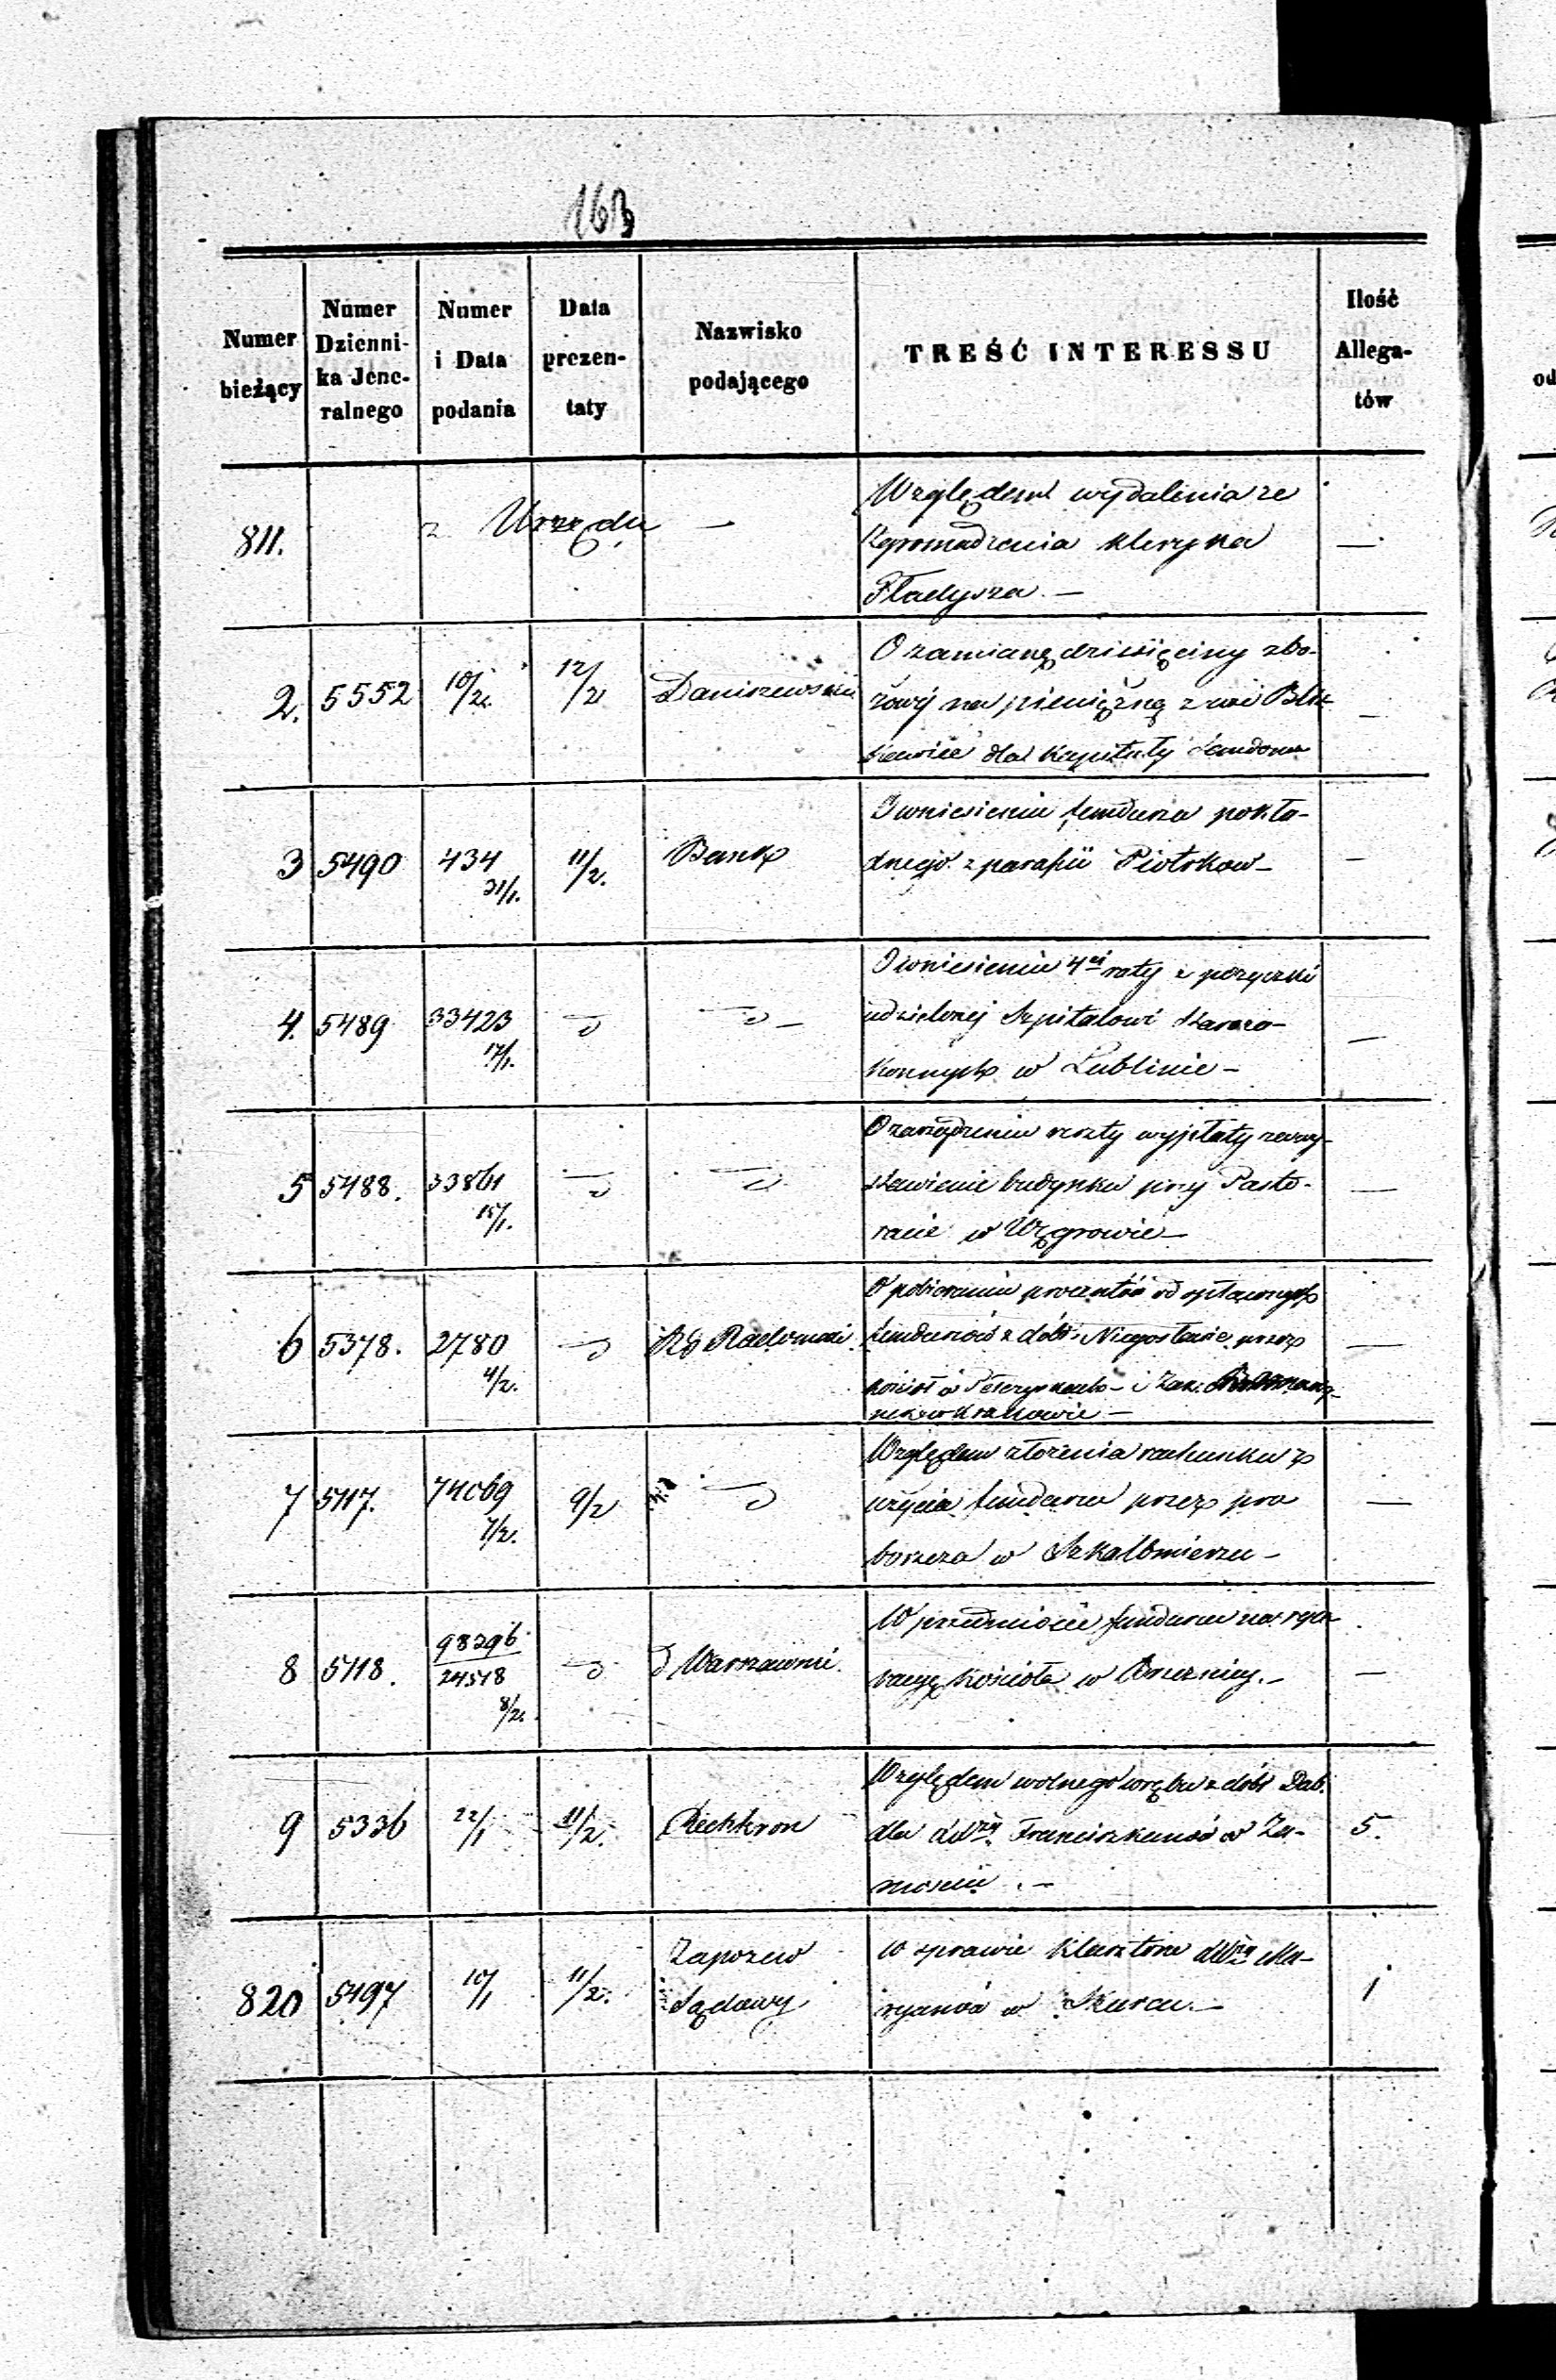 163
Numer bieżący
Numer Dzienni-ka Jene-ralnego
Numer i Data podania
Data prezen-taty
Nazwisko podającego
TREŚĆ INTERESSU
Ilość Allega-tów
811. z Urzędu —
Względem wydalenia ze
Zgromadzenia kleryka
Fładysza. —
—
2. 5552 10/2. 12/2 Daniszewski
O zamianę dziesięciny zbo-
żowej na pieniężną z wsi
dla Kapituły Sandom
—
3 5490 434 31/1. 11/2. Bank
O wniesieniu funduszu pokła-
dnego z parafii Piotrkow —
—
4. 5489 33423 17/1.
O wniesieniu 4ej raty z pożyczki
udzielonej Szpitalowi Starozo-
konnych w Lublinie —
—
5 5488. 33861 15/1.
O zarządzeniu reszty wypłaty za wy-
stawienie budynku przy Pasto-
racie w Węgrowie —
—
6 5378. 2780 4/2. RG Radomski
O pobieraniu procentów od
funduszów z dóbr przez
kościół w i Zak.
w Krakowie —
—
7 5117. 74069 7/2. 9/2
Względem złożenia rachunku z
użycia funduszu przez pro
boszcza w Szkalbmierzu —
—
8 5118. 98296 24518 8/2. d Warszawski
W przedmiocie funduszu na repa-
racyę kościoła w
—
9 5336 22/1 11/2. Rechtkron
Względem wolnego wrębu z dóbr Dąb.
dla XXży Franciszkanów w Za-
mościu. —
5.
820 5497 10/1 11/2. Zapozew
Sądowy
w sprawie Klasztoru XXży Ma-
ryanów w Skurcu. —
1